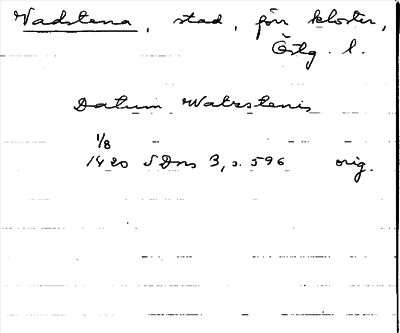 Vadstena, stad, förr kloster,
Östg. l.
Datum Watzstenis
1/8
1420 SDns 3, s. 596 orig.